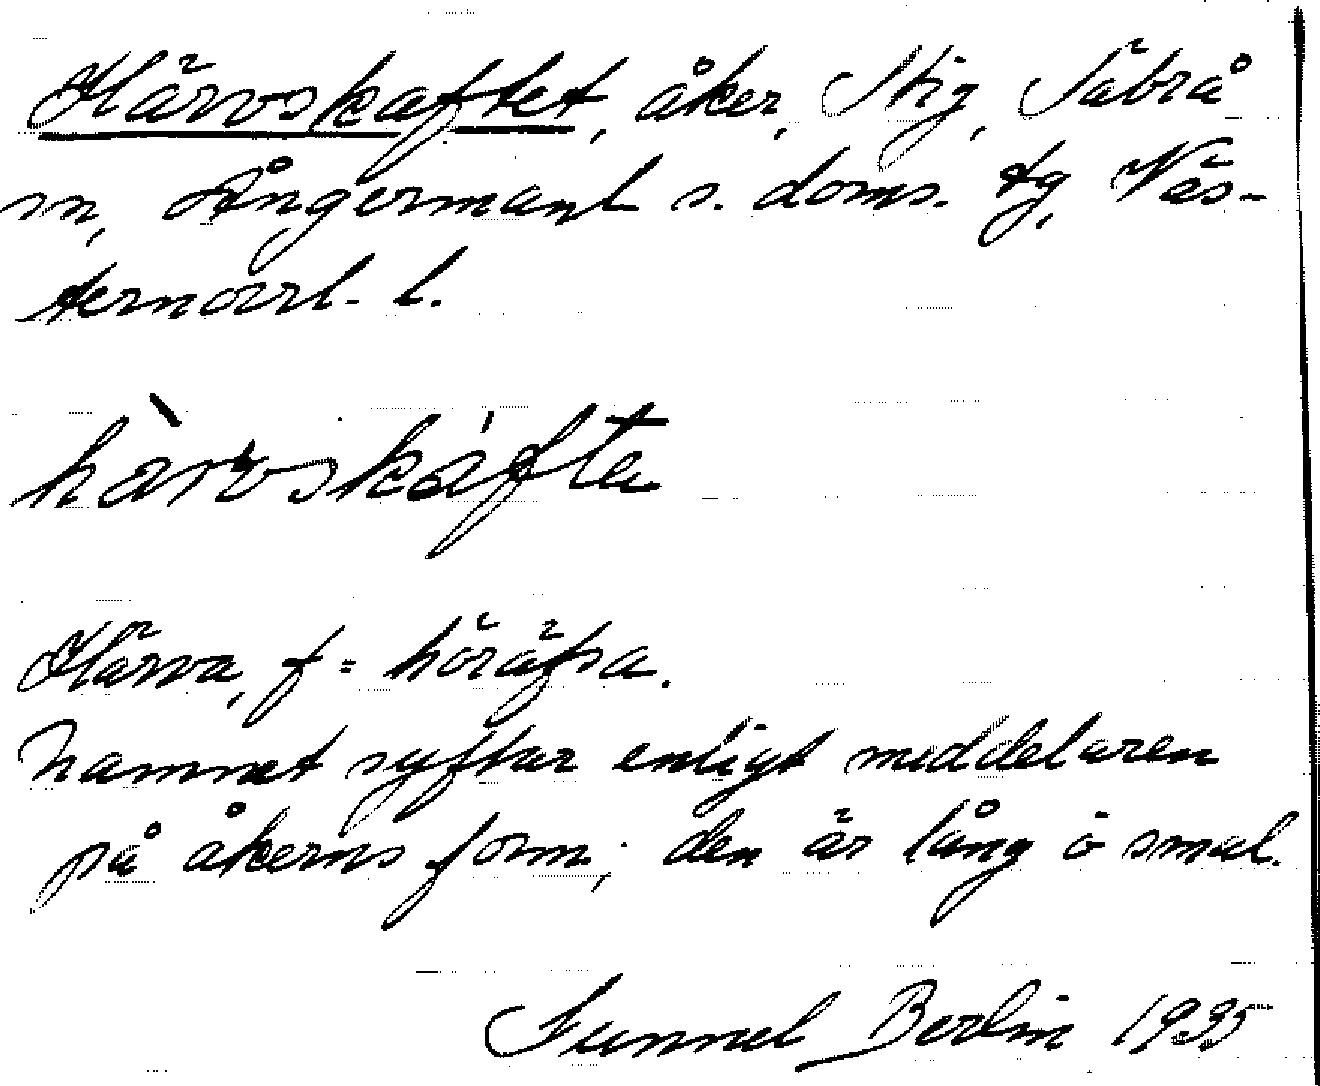 Härvskaftet, åker, Stig, Säbrå
sn, Ångermanl s. doms. tg, Väs-
ternorrl. l.
hàrvskáfte
Härva, f = höräfsa.
Namnet syftar enligt meddelaren
på åkerns form; den är lång o smal.
Gunnel Berlin 1935